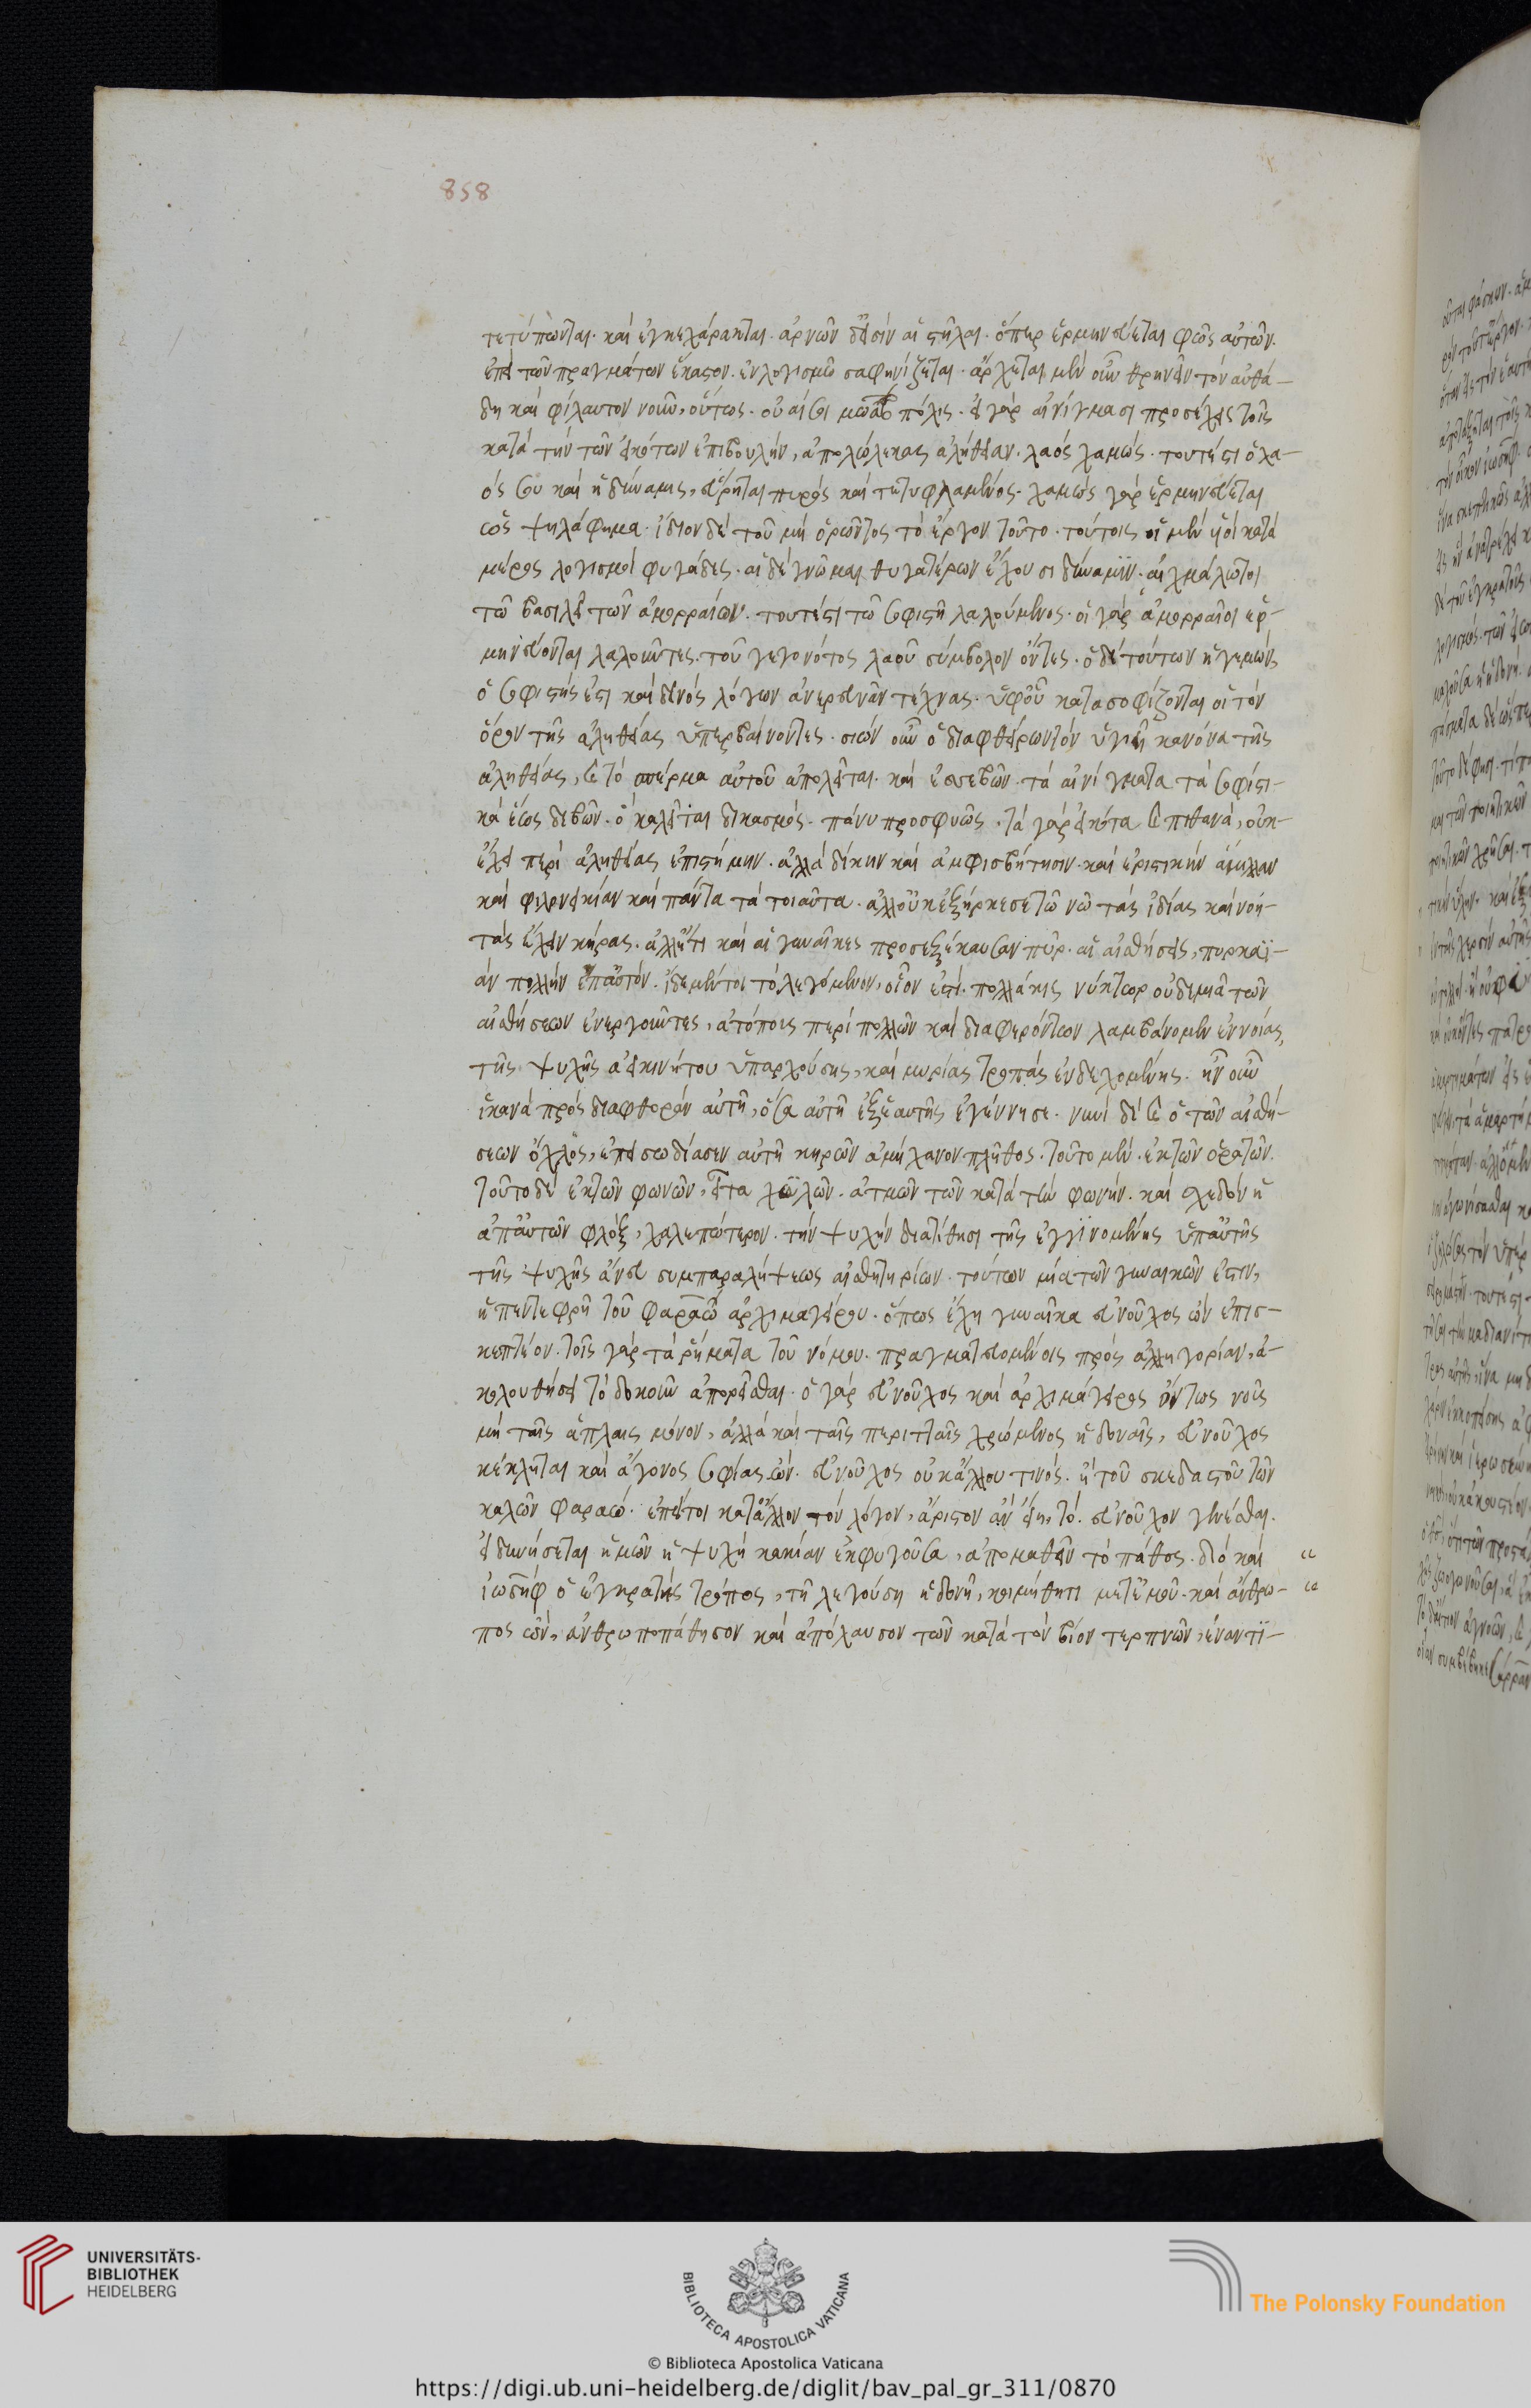 858
τετύπωνται· καὶ ἐγκεχάρακται· ἀρνῶν δ' εἰσὶν αἱ στῆλαι· ὅπερ ἑρμηνεύεται φῶς αὐτῶν·
ἐπεὶ τῶν πραγμάτων ἕκαστον· ἐν λογισμῷ σαφηνίζεται· ἄρχεται μὲν οὖν θρηνεῖν τὸν αὐθά-
δη καὶ φίλαυτον νοῦν, οὕτως· οὐαί σοι μωὰβ πόλις· εἰ γὰρ αἰνίγμασι προσέχεις τοῖς
κατὰ τὴν τῶν εἰκότων ἐπιβουλήν, ἀπολώλεκας ἀλήθειαν· λαὸς χαμώς· τουτέστι ὁ λα-
ός σου καὶ ἡ δύναμις, εὕρηται πηρὸς καὶ τετυφλωμένος· χαμὼς γὰρ ἑρμηνεύεται
ὡς ψηλάφημα· ἴδιον δὲ τοῦ μὴ ὁρῶντος τὸ ἔργον τοῦτο· τούτοις οἱ μὲν υἱοὶ κατὰ
μέρος λογισμοὶ φυγάδες· αἱ δὲ γνῶμαι θυγατέρων ἔχουσι δύναμιν· αἰχμάλωτοι
τῷ βασιλεῖ τῶν ἀμορραίων· τουτέστι τῷ σοφιστῇ λαλούμενος· οἱ γὰρ ἀμορραῖοι ἑρ-
μηνεύονται λαλοῦντες· τοῦ γεγονότος λαοῦ σύμβολον ὄντες· ὁ δὲ τούτων ἡγεμών,
ὁ σοφιστής ἐστι καὶ δεινὸς λόγων ἀνερευνᾶν τέχνας· ὑφ' οὗ κατασοφίζονται οἱ τὸν
ὅρον τῆς ἀληθείας ὑπερβαίνοντες· σιὼν οὖν ὁ διαφθείρων τὸν ὑγιῆ κανόνα τῆς
ἀληθείας, καὶ τὸ σπέρμα αὐτοῦ ἀπολεῖται· καὶ ἐσεβὼν· τὰ αἰνίγματα τὰ σοφιστι-
κὰ ἕως δεβών· ὃ καλεῖται δικασμός· πάνυ προσφυῶς· τὰ γὰρ εἰκότα καὶ πιθανά, οὐκ
ἔχει περὶ ἀληθείας ἐπιστήμην· ἀλλὰ δίκην καὶ ἀμφισβήτησιν· καὶ ἐριστικὴν ἅμιλλαν
καὶ φιλονεικίαν καὶ πάντα τὰ τοιαῦτα· ἀλλ' οὐκ ἐξήρκεσε τῷ νῷ τὰς ἰδίας καὶ νοη-
τὰς ἔχειν κῆρας· ἀλλ' ἔτι καὶ αἱ γυναῖκες προσεξέκαυσαν πῦρ· αἱ αἰσθήσεις, πυρκαϊ-
ὰν πολλὴν ἐπ' αὐτόν· ἴδε μέντοι τὸ λεγόμενον, οἷόν ἐστι· πολλάκις νύκτωρ οὐδεμιᾷ τῶν
αἰσθήσεων ἐνεργοῦντες, ἀτόπους περὶ πολλῶν καὶ διαφερόντων λαμβάνομεν ἐννοίας,
τῆς ψυχῆς ἀεικινήτου ὑπαρχούσης, καὶ μυρίας τροπὰς ἐνδεχομένης· ἦν οὖν
ἱκανὰ πρὸς διαφθορὰν αὐτῇ, ὅσα αὐτὴ ἐξ ἑαυτῆς ἐγέννησε· νυνὶ δὲ καὶ ὁ τῶν αἰσθή-
σεων ὄχλος, ἐπεισωδίασεν αὐτῇ κηρῶν ἀμήχανον πλῆθος· τοῦτο μὲν· ἐκ τῶν ὁρατῶν·
τοῦτο δὲ ἐκ τῶν φωνῶν, εἶτα χυλῶν· ἀτμῶν τῶν κατὰ τὴν φωνήν· καὶ σχεδὸν ἡ
ἀπ' αὐτῶν φλόξ, χαλεπώτερον· τὴν ψυχὴν διατίθησι τῆς ἐγγινομένης ὑπ' αὐτῆς
τῆς ψυχῆς ἄνευ συμπαραλήψεως αἰσθητηρίων· τούτων μία τῶν γυναικῶν ἐστιν,
ἡ πεντεφρῆ τοῦ φαραὼ ἀρχιμαγείρου· ὅπως ἔχῃ γυναῖκα εὐνοῦχος ὢν ἐπισ-
κεπτέον· τοῖς γὰρ τὰ ῥήματα τοῦ νόμου· πραγματευομένοις πρὸς ἀλληγορίαν, ἀ-
κολουθήσει τὸ δοκοῦν ἀπορεῖσθαι· ὁ γὰρ εὐνοῦχος καὶ ἀρχιμάγειρος ὄντως νοῦς
μὴ ταῖς ἁπλαῖς μόνον, ἀλλὰ καὶ ταῖς περιτταῖς χρώμενος ἡδοναῖς, εὐνοῦχος
κέκληται καὶ ἄγονος σοφίας ὤν· εὐνοῦχος οὐκ ἄλλου τινός· ἢ τοῦ σκεδαστοῦ τῶν
καλῶν φαραώ· ἐπεί τοι κατ' ἄλλον τὸν λόγον, ἄριστον ἂν εἴη, τὸ· εὐνοῦχον γενέσθαι·
εἰ δυνήσεται ἡμῶν ἡ ψυχὴ κακίαν ἐκφυγοῦσα, ἀπομαθεῖν τὸ πάθος· διὸ καὶ
ἰωσὴφ ὁ ἐγκρατὴς τρόπος, τῇ λεγούσῃ ἡδονῇ, κοιμήθητι μετ' ἐμοῦ· καὶ ἄνθρω-
πος ὤν, ἀνθρωποπάθησον καὶ ἀπόλαυσον τῶν κατὰ τὸν βίον τερπνῶν, ἐναντι-
UNIVERSITÄTS-
BIBLIOTHEK
HEIDELBERG
BIBLIOTECA APOSTOLICA VATICANA
The Polonsky Foundation
© Biblioteca Apostolica Vaticana
https://digi.ub.uni-heidelberg.de/diglit/bav_pal_gr_311/0870